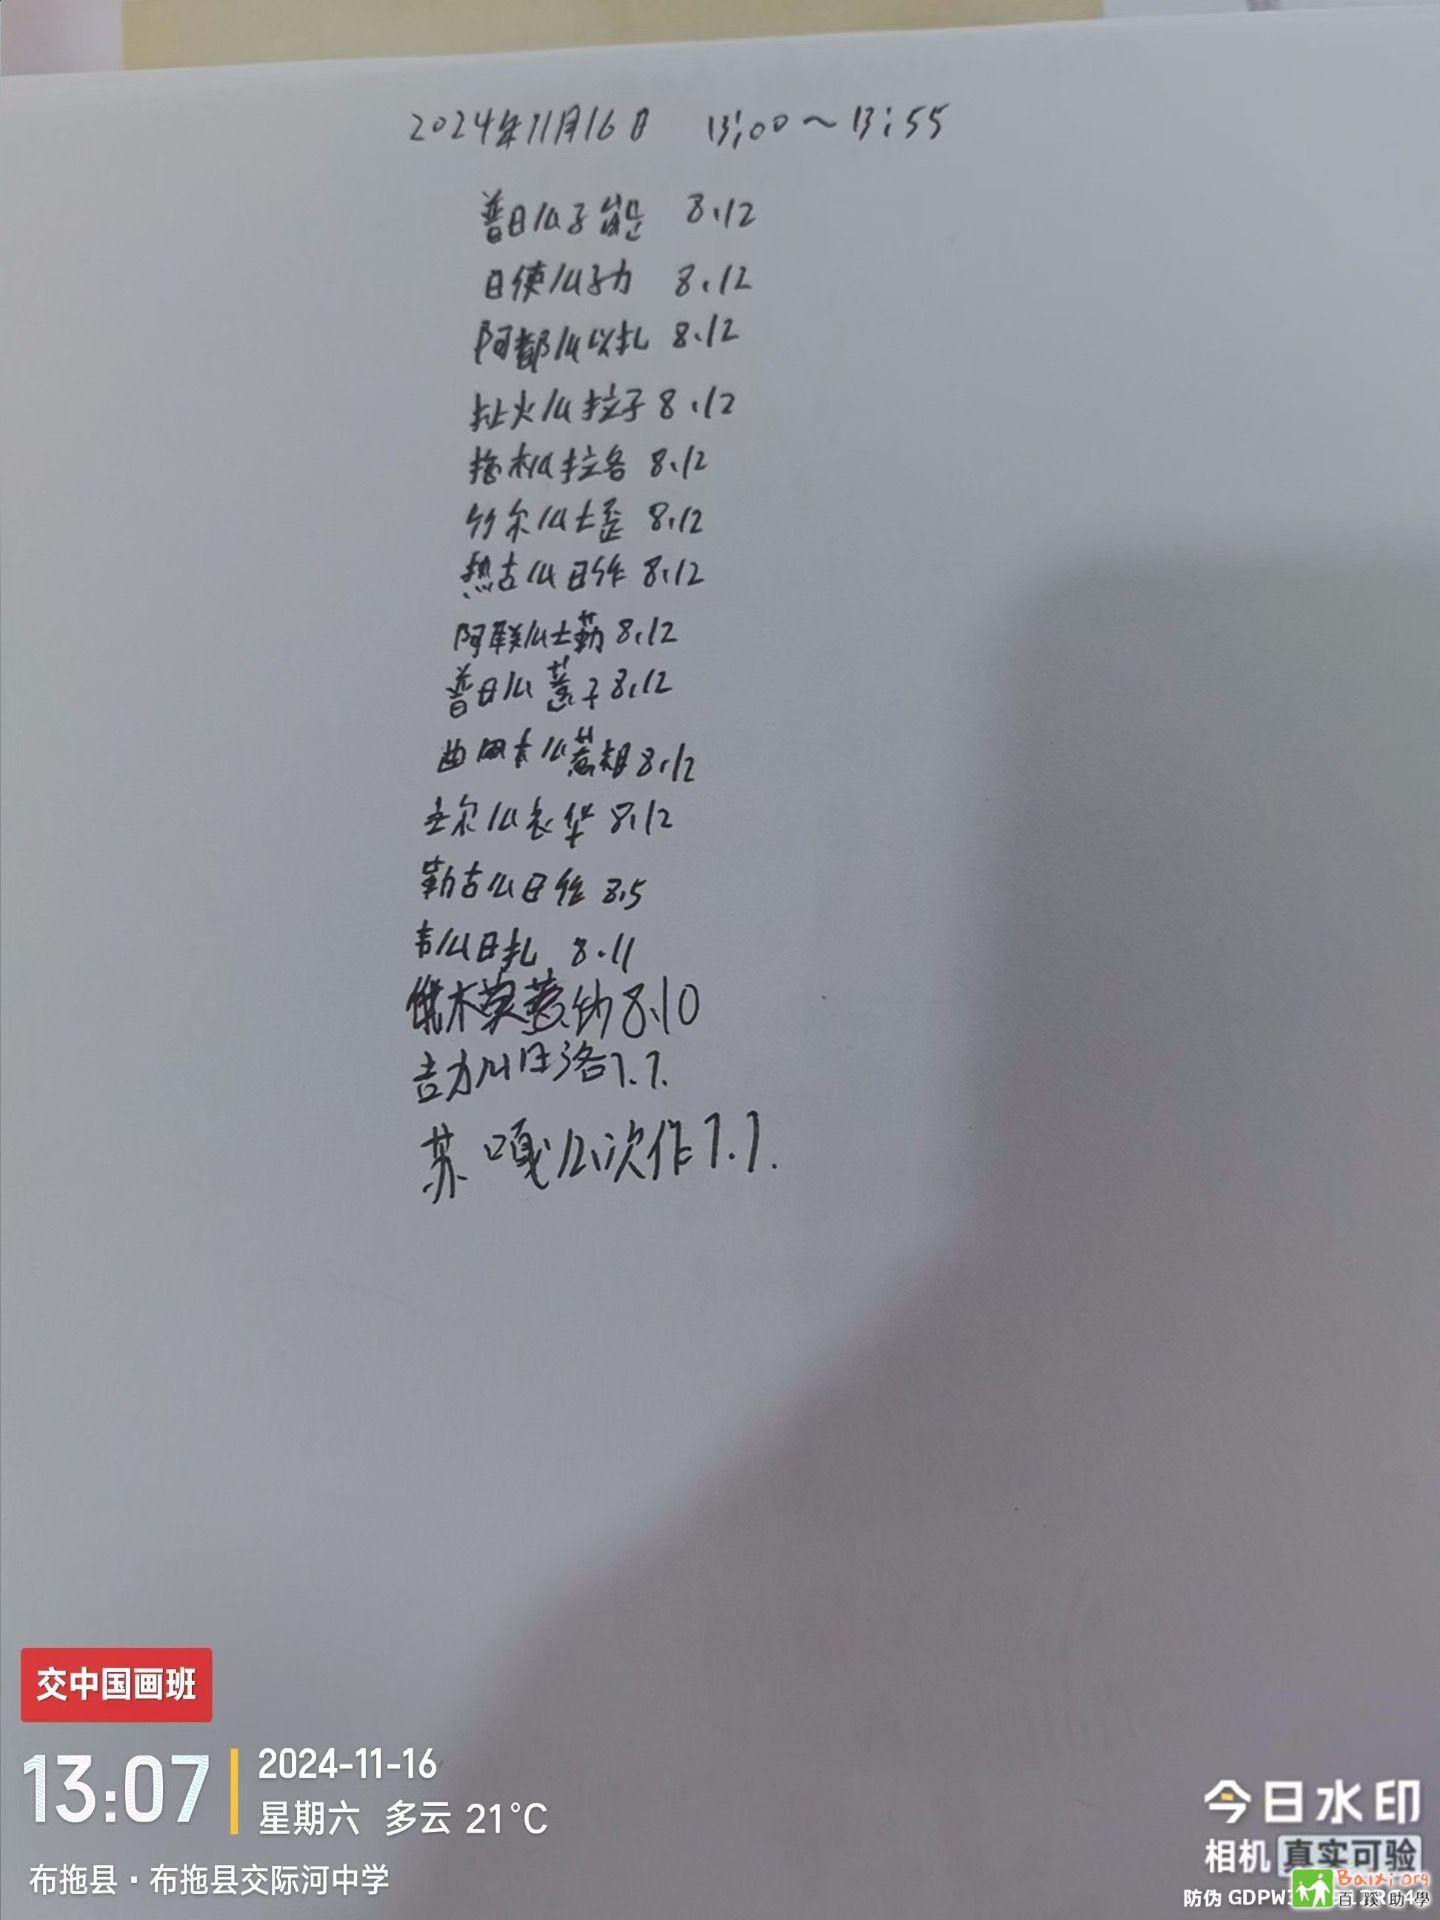 2024年11月16日 13:00～13:55
普日么子 8.12
日使么子力 8.12
阿都么以扎 8.12
扯火么拉子 8.12
拉各 8.12
竹尔么士歪 8.12
热古么日作 8.12
阿联么士勒 8.12
普日么惹子 8.12
曲 么 8.12
圣尔么衣华 8.12
勒古么日作 8.5
吉么日扎 8.11
俄木莫惹幼 8.10
吉力么日洛 7.7.
苏嘎么次作 7.7.
交中国画班
13:07
2024-11-16
星期六 多云 21°C
布拖县·布拖县交际河中学
今日水印
相机 真实可验
防伪 GDPW3
Baixi.org
百蹊助學